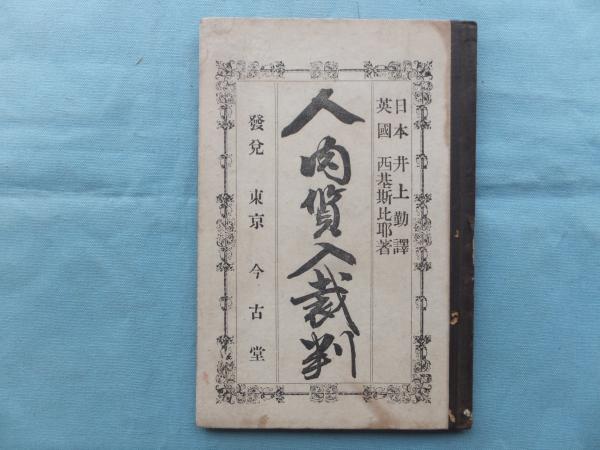 日本 井上勤譯
英國 西基斯比耶著
人肉質入裁判
發兌 東京 今古堂